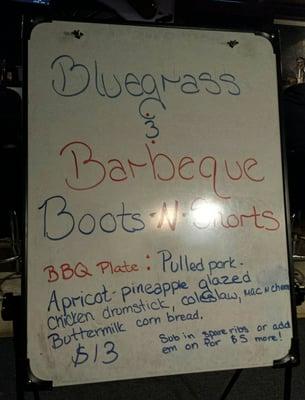 Bluegrass
&
Barbeque
Boots-N-Shorts
BBQ Plate: Pulled pork.
Apricot-pineapple glazed
chicken drumstick, coleslaw, Mac N cheese
Buttermilk corn bread.
$13
Sub in spare ribs or add
em on for $5 more!